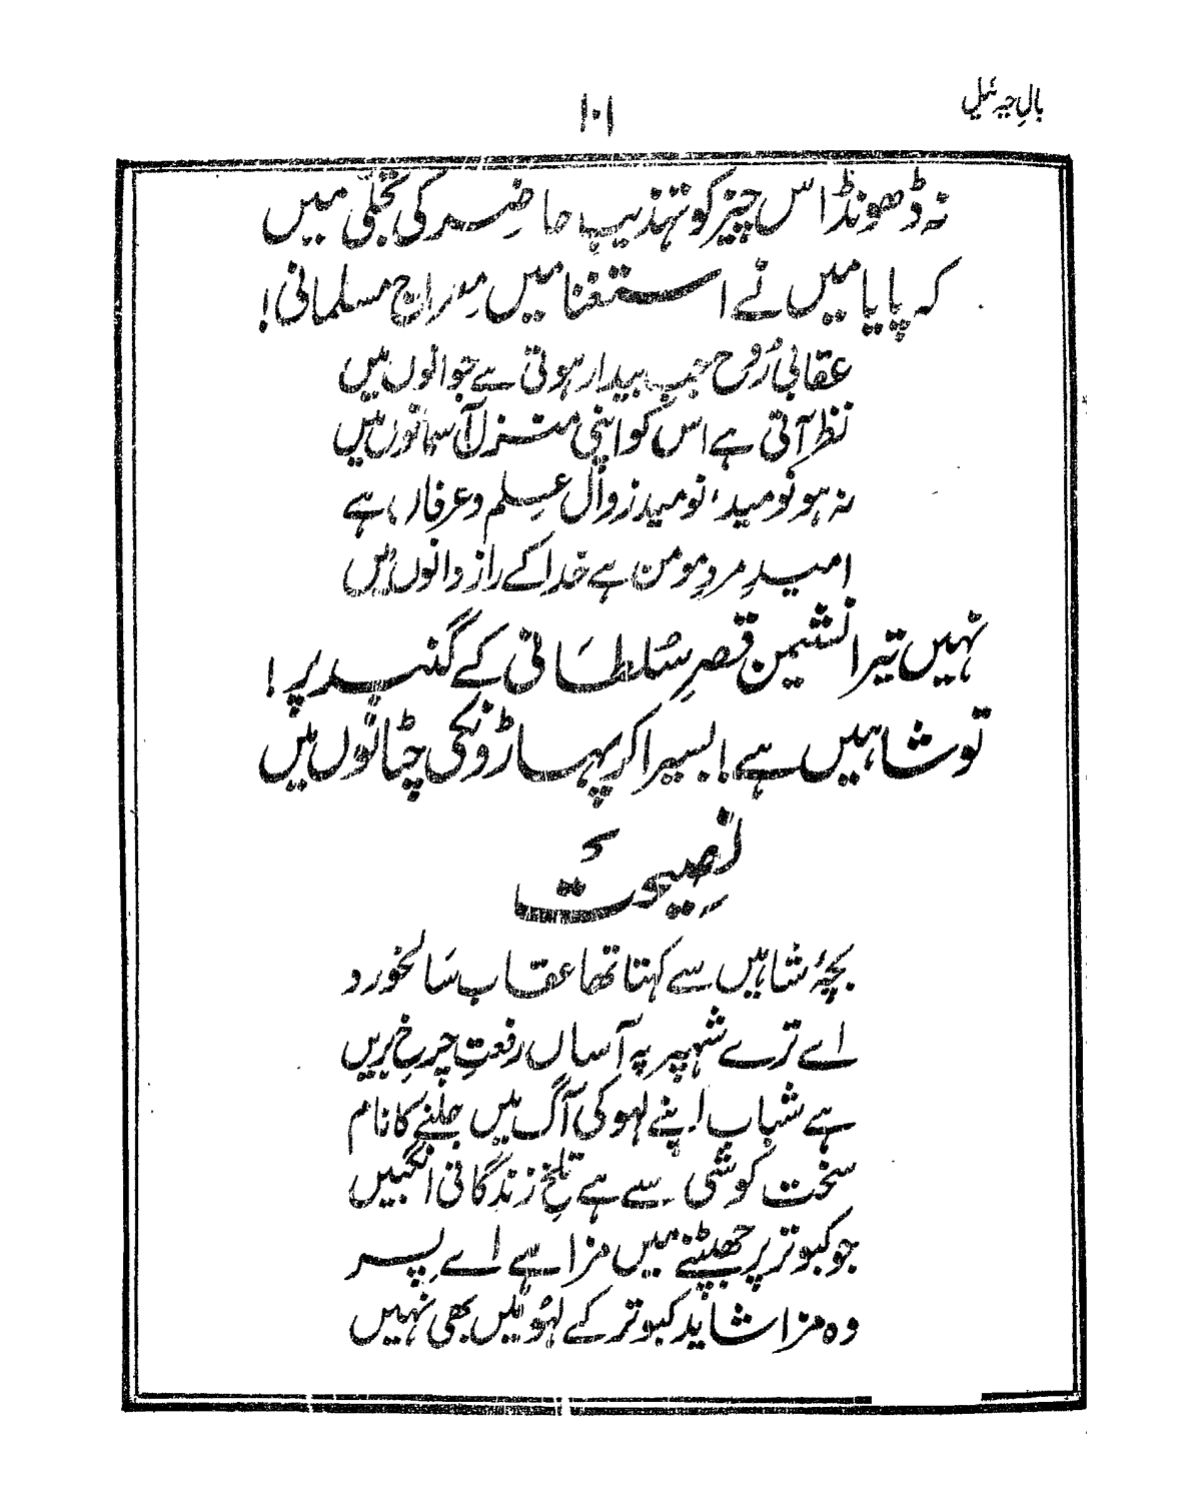 بالِ جبرئیل
۱۰۱
نہ ڈھونڈ اس چیز کو تہذیبِ حاضِر کی تجلّی میں
کہ پایا میں نے استغنا میں معراجِ مسلمانی!
عقابی رُوح جب بیدار ہوتی ہے جوانوں میں
نظر آتی ہے اس کو اپنی منزل آسمانوں میں
نہ ہو نومید، نومیدی زوالِ عِلم و عرفاں ہے
امیدِ مردِ مومن ہے خدا کے راز دانوں میں
نہیں تیرا نشیمن قصرِ سُلطَانی کے گنبد پر!
تو شاہیں ہے! بسیرا کر پہاڑونکی چٹانوں میں
نصِیحت
بچۂ شاہیں سے کہتا تھا عقابِ سَالخورد
اے ترے شہپر پہ آساں رفعتِ چرخِ بریں
ہے شباب اپنے لہو کی آگ میں جلنے کا نام
سخت کوشی سے ہے تلخِ زندگانی انگبیں
جو کبوتر پر جھپٹنے میں مزا ہے اے پِسر
وہ مزا شاید کبوتر کے لہُو میں بھی نہیں